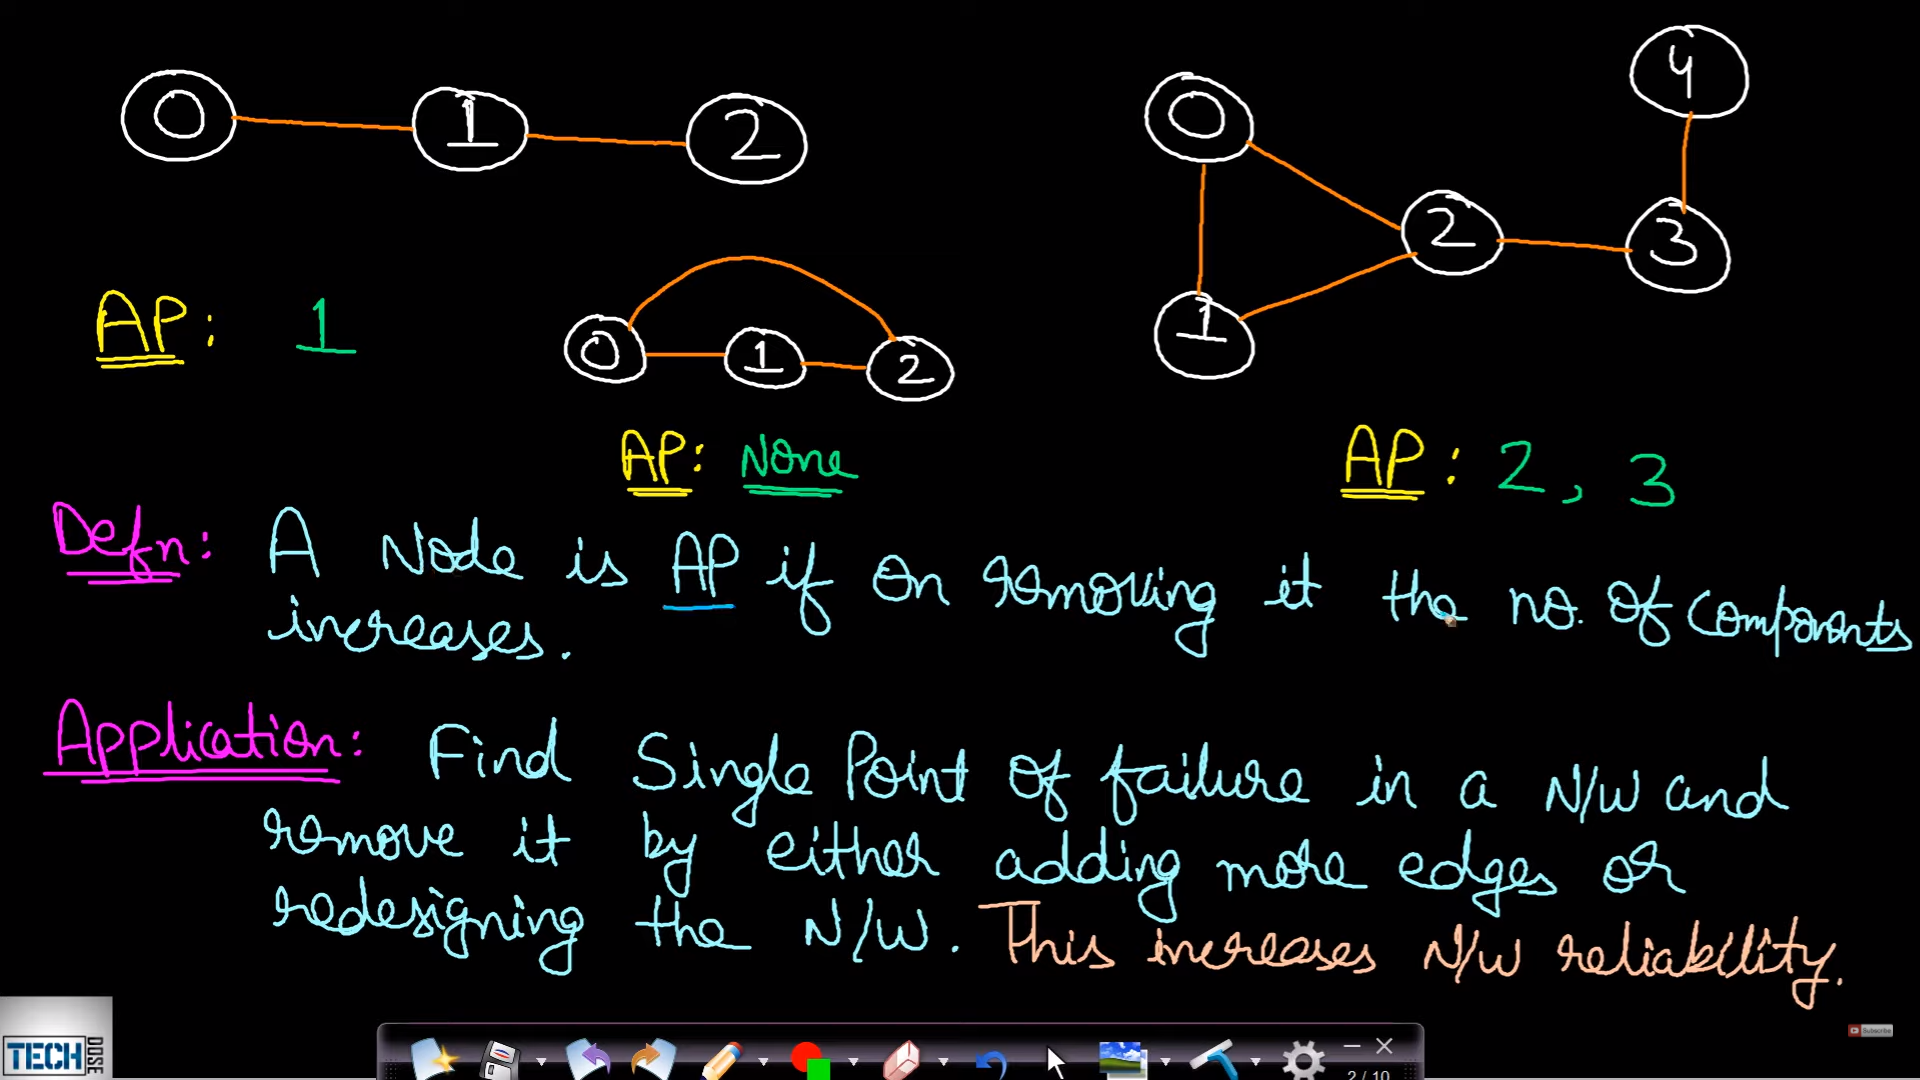 0 1 2
0 1 2 3 4
AP: 1
0 1 2
AP: None
AP: 2, 3
Defn: A Node is AP if on removing it the no. of components
increases.
Application: Find Single Point of failure in a N/W and
remove it by either adding more edges or
redesigning the N/W. This increases N/W reliability.
TECH DOSE
Subscribe
2 / 10